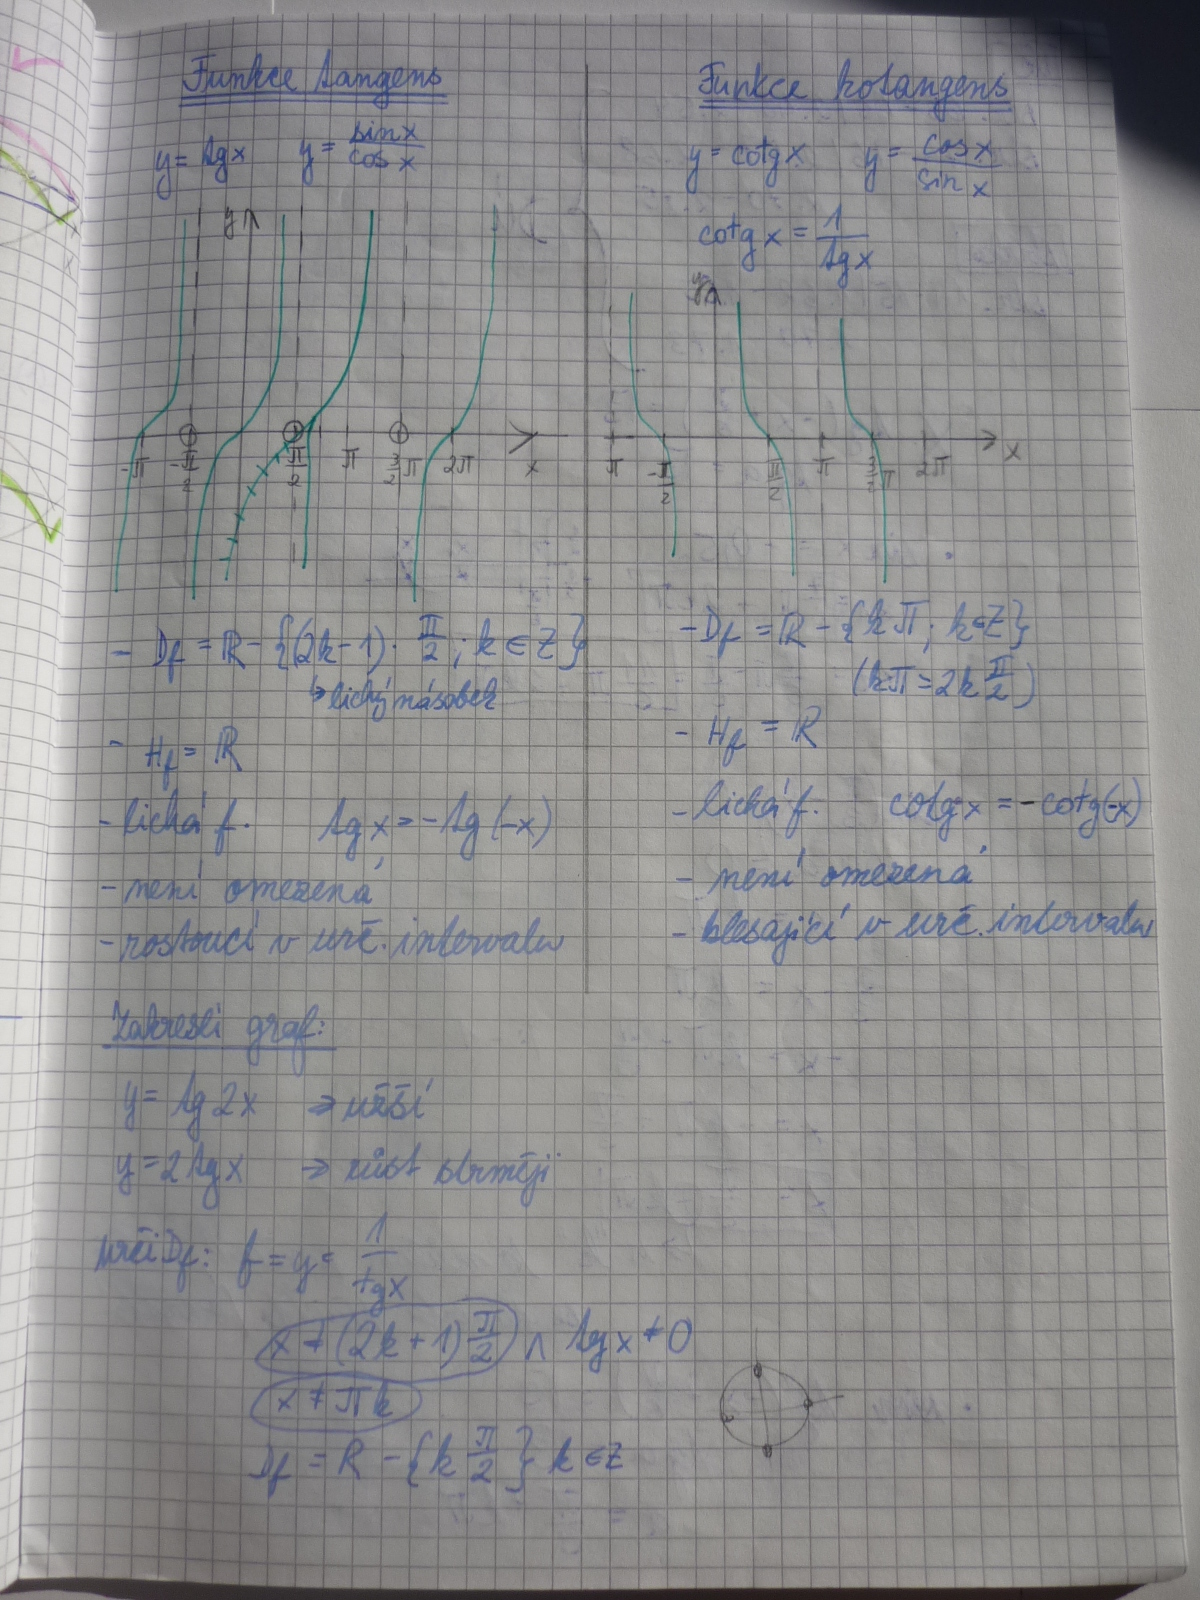 Funkce tangens
y = tg x   y = sin x / cos x
y
-π   -π/2   π/2   π   3/2 π   2π   x
- Df = ℝ - {(2k-1) · π/2 ; k ∈ Z}
↳ lichý násobek
- Hf = ℝ
- lichá f.   tg x = -tg (-x)
- není omezená
- rostoucí v urč. intervalu
Funkce kotangens
y = cotg x   y = cos x / sin x
cotg x = 1 / tg x
y
π   -π/2   π/2   π   3/2 π   2π   x
- Df = ℝ - {kπ ; k ∈ Z}
(kπ = 2k π/2)
- Hf = ℝ
- lichá f.   cotg x = -cotg (-x)
- není omezená
- klesající v urč. intervalu
Zakresli graf:
y = tg 2x   → užší
y = 2 tg x   → růst strměji
urči Df: f = y = 1 / tg x
x ≠ (2k + 1) π/2 ∧ tg x ≠ 0
x ≠ πk
Df = R - {k π/2} k ∈ Z